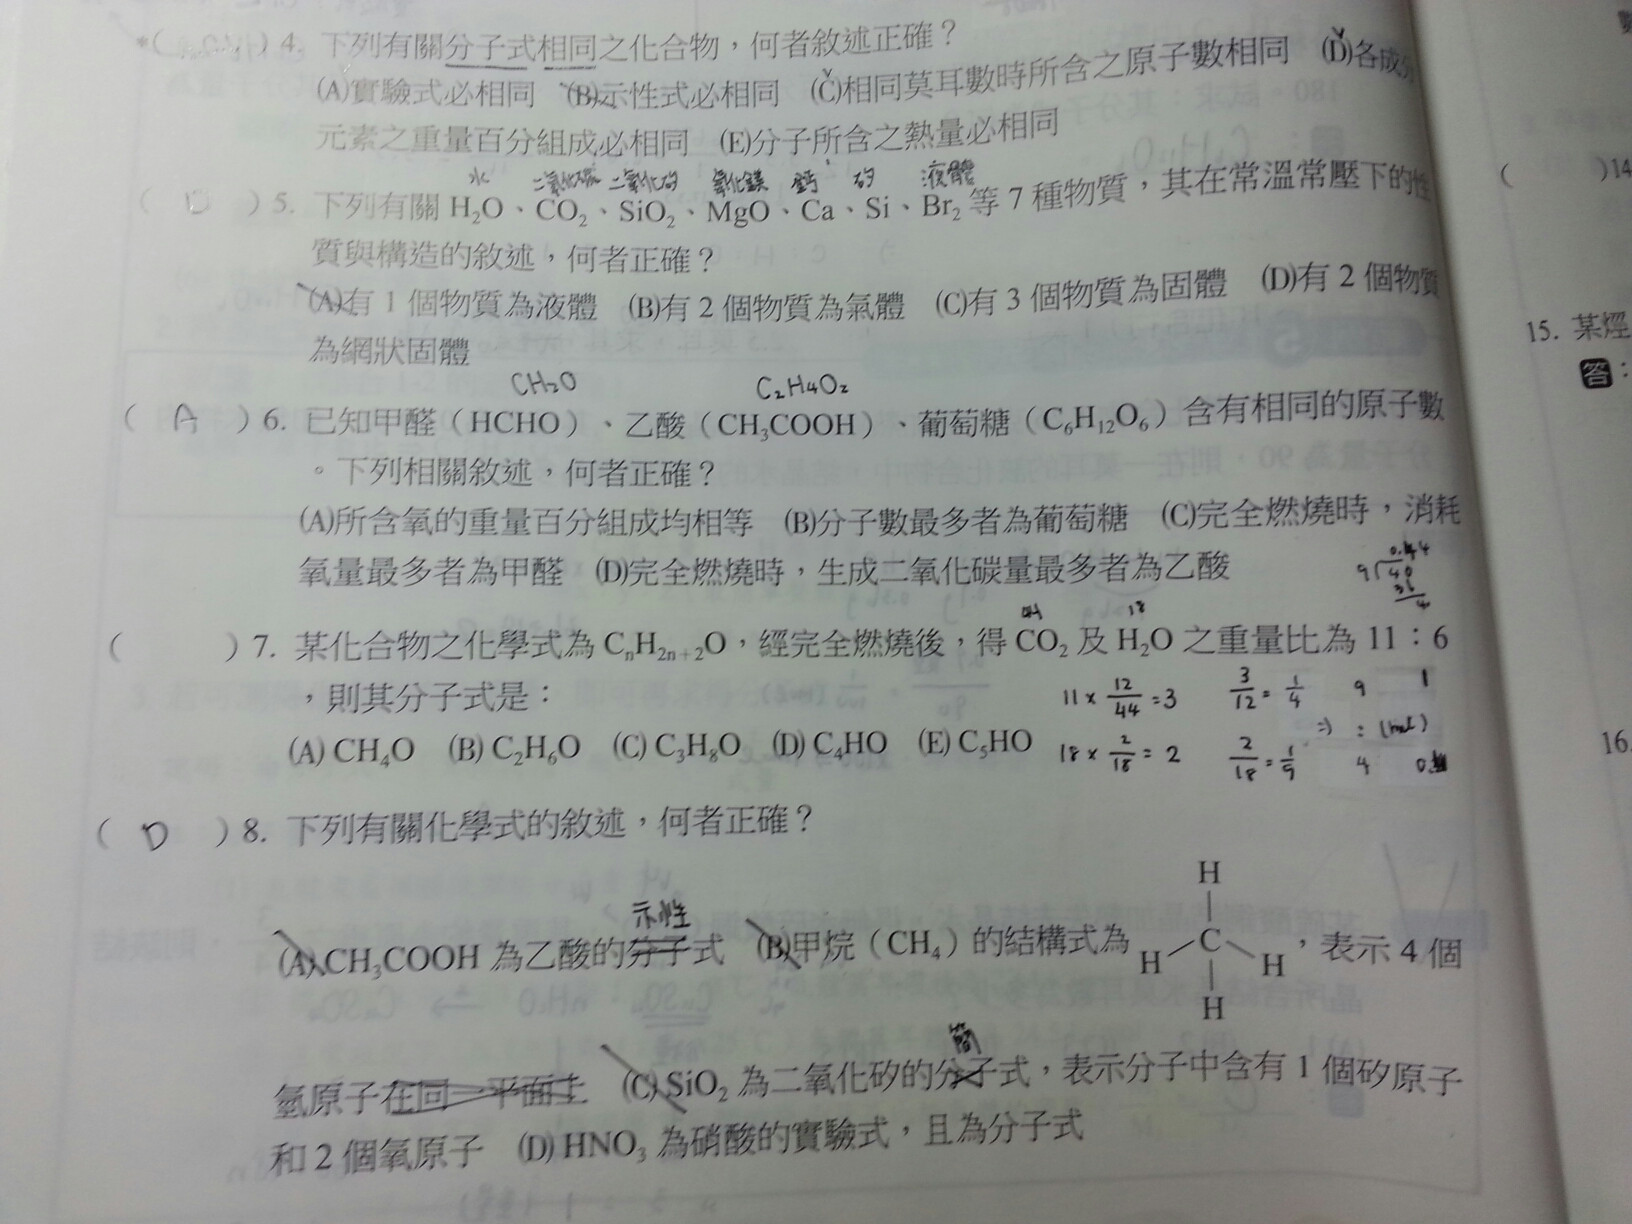 *( ) 4. 下列有關分子式相同之化合物，何者敘述正確？
(A)實驗式必相同 (B)示性式必相同 (C)相同莫耳數時所含之原子數相同 (D)各成分
元素之重量百分組成必相同 (E)分子所含之熱量必相同
水 二氧化碳 二氧化矽 氧化鎂 鈣 矽 液體
( D ) 5. 下列有關 H₂O、CO₂、SiO₂、MgO、Ca、Si、Br₂ 等 7 種物質，其在常溫常壓下的性
質與構造的敘述，何者正確？
(A)有 1 個物質為液體 (B)有 2 個物質為氣體 (C)有 3 個物質為固體 (D)有 2 個物質
為網狀固體
CH₂O C₂H₄O₂
( A ) 6. 已知甲醛（HCHO）、乙酸（CH₃COOH）、葡萄糖（C₆H₁₂O₆）含有相同的原子數
。下列相關敘述，何者正確？
(A)所含氧的重量百分組成均相等 (B)分子數最多者為葡萄糖 (C)完全燃燒時，消耗
氧量最多者為甲醛 (D)完全燃燒時，生成二氧化碳量最多者為乙酸
44 18
( ) 7. 某化合物之化學式為 CₙH₂ₙ₊₂O，經完全燃燒後，得 CO₂ 及 H₂O 之重量比為 11：6
，則其分子式是：
11 × 12/44 = 3 3/12 = 1/4 9 1
(A) CH₄O (B) C₂H₆O (C) C₃H₈O (D) C₄HO (E) C₅HO
⇒ : (mol)
18 × 2/18 = 2 2/18 = 1/9 4
( D ) 8. 下列有關化學式的敘述，何者正確？
示性
(A) CH₃COOH 為乙酸的分子式 (B)甲烷（CH₄）的結構式為
H
H C H
H
，表示 4 個
簡
氫原子在同一平面上 (C) SiO₂ 為二氧化矽的分子式，表示分子中含有 1 個矽原子
和 2 個氧原子 (D) HNO₃ 為硝酸的實驗式，且為分子式
)14
15. 某烴
答：
16.